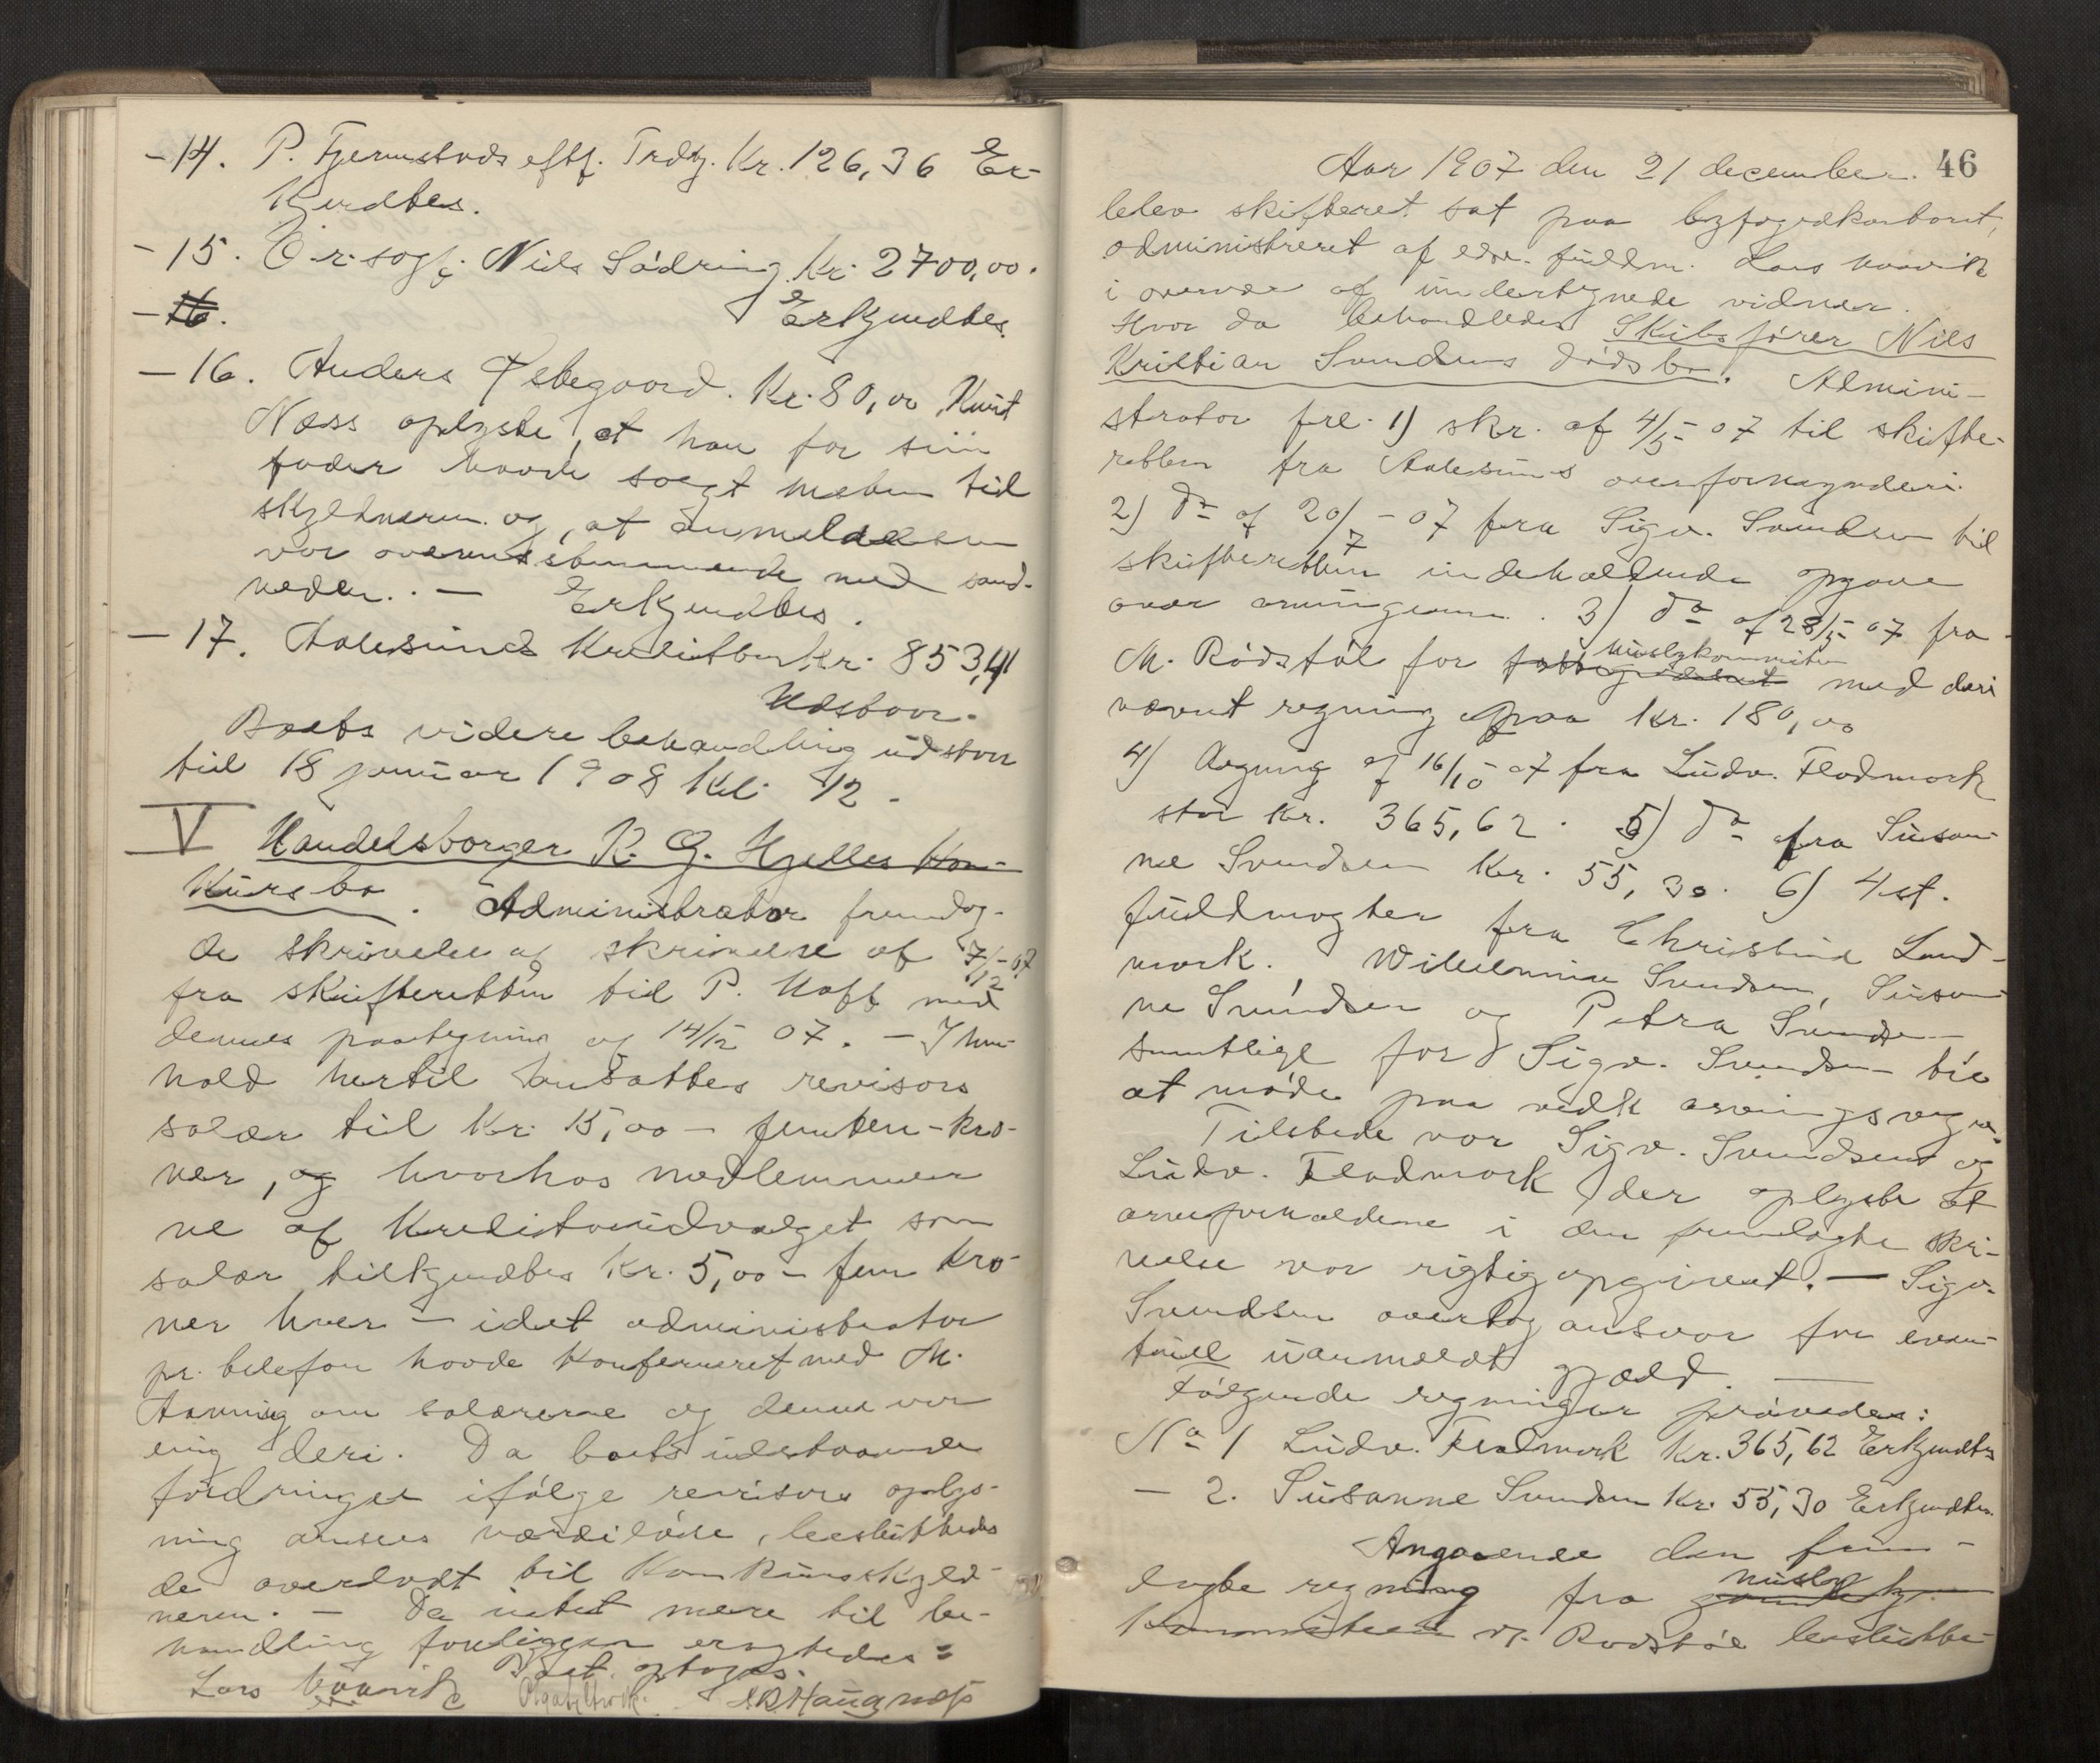 - 14. P. Fjermstads eftf. Trdhj. Kr. 126,36 Er-
kjendtes.
- 15. O.r.sagf. Nils Södring Kr. 2700,00.
- 16.
Erkjendtes
- 16. Anders Østegaard. Kr. 80,00 Knut
Næss oplyste, at han for sin
fader havde solgt melken til
skyldneren og, at anmeldelsen
var overensstemmende med sand-
heden. — Erkjendtes.
- 17. Aalesunds Kreditbank Kr. 853,41
Udstaar.
Boets videre behandling udstaar
til 18 januar 1908 kl. 12.
V Handelsborger K. G. Hjelles Kon-
kursbo. Administrator fremlag-
de skrivelse af skrivelse af 7/12-07
fra skifteretten til P. Hoff med
dennes paategning af 14/12 07. — I hen-
hold hertil ansattes revisors
salær til Kr. 15,00 - femten - kro-
ner, og hvorhos medlemmer
ne af kreditorudvalget som
salær tilkjendtes Kr. 5,00 - fem kro-
ner hver - idet administrator
pr. telefon havde konfereret med M.
Aarning om salærerne og denne var
enig deri. Da boets udstaaende
fordringer ifølge revisors oplys-
ning ansees værdiløse, besluttedes
de overladt til konkursskyld-
neren. — Da intet mere til be-
handling foreligger eragtedes:
Boet optages.
Lars Vaavik
Aar 1907 den 21 december. 46
blev skifteret sat paa byfogedkontoret,
administreret af edsv. fuldm. Lars Vaavik
i overvær af undertegnede vidner.
Hvor da behandledes Skibsfører Nils
Kristian Svendsens dødsbo. Admini-
strator frl. 1) skr. af 4/5-07 til skifte-
retten fra Aalesunds overformynderi.
2) do af 20/7-07 fra Sigv. Svendsen til
skifteretten indeholdende opgave
over arvingerne. 3) do af 28/5-07 fra
M. Rödstöl for fattigvæsenet med deri
nævnt regning paa Kr. 180,00
4) Regning af 16/10-07 fra Ludv. Fladmark
stor Kr. 365,62. 5) do fra Susan-
ne Svendsen Kr. 55,30. 6) 4 st.
fuldmagter fra Christine Land-
mark. Wilhelmine Svendsen, Susan-
ne Svendsen og Petra Svendsen
samtlige for Sigv. Svendsen til
at møde paa vedk arvings vegne.
Tilstede var Sigv. Svendsen og
Ludv. Fladmark der oplyste at
arveforholdene i den fremlagte skri-
velse var rigtig opgivet. — Sigv.
Svendsen overtog ansvar for even-
tuell uanmeldt gjæld. —
Følgende regninger prøvedes:
No 1 Ludv. Fladmark Kr. 365,62 Erkjendtes
- 2. Susanne Svendsen Kr. 55,30 Erkjendtes.
Angaaende den frem-
lagte regning fra
M. Rødstøl beslutte-